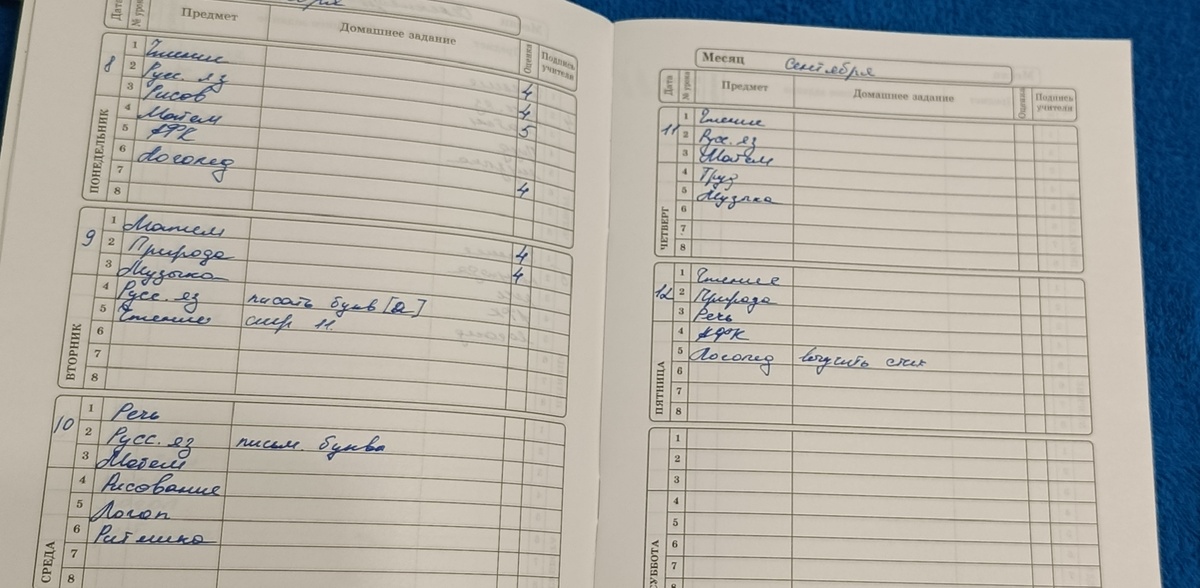 Дата № урока Предмет Домашнее задание Оценка Подпись учителя
ПОНЕДЕЛЬНИК
8
1 Чтение
2 Русс. яз 4
3 Рисов 4
4 Матем 5
5 АФК
6 Логопед
7 4
8
ВТОРНИК
9
1 Матем
2 Природа 4
3 Музыка 4
4 Русс. яз писать букв [а]
5 Чтение стр 11.
6
7
8
СРЕДА
10
1 Речь
2 Русс. яз письм. буква
3 Матем
4 Рисование
5 Логоп
6 Ритмика
7
8
Месяц сентября
Дата № урока Предмет Домашнее задание Оценка Подпись учителя
ЧЕТВЕРГ
11
1 Чтение
2 Русс. яз
3 Матем
4 Труд
5 Музыка
6
7
8
ПЯТНИЦА
12
1 Чтение
2 Природа
3 Речь
4 АФК
5 Логопед выучить стих
6
7
8
СУББОТА
1
2
3
4
5
6
7
8